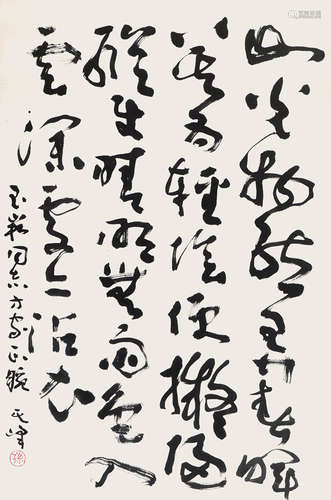 山光物態弄春暉
莫為輕陰便擬歸
縱使晴明無雨色入
雲深處亦沾衣
玉同志方家正腕 其峰